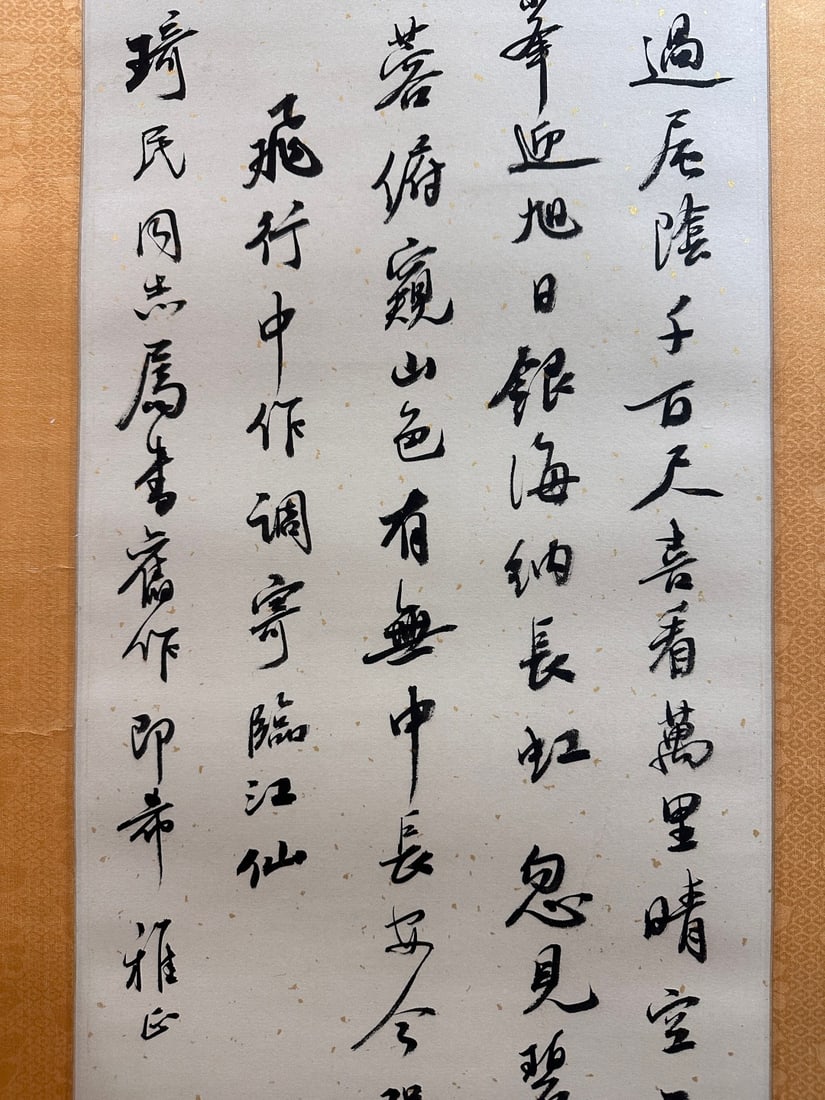 過層陰千百尺喜看萬里晴空
峯迎旭日銀海納長虹忽見碧
蓉俯窺山色有無中長安今
飛行中作調寄臨江仙
琦民同志屬書舊作即希雅正